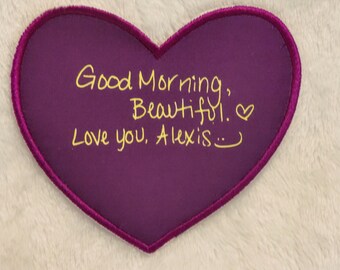 Good Morning,
Beautiful. ♡
Love you, Alexis :)